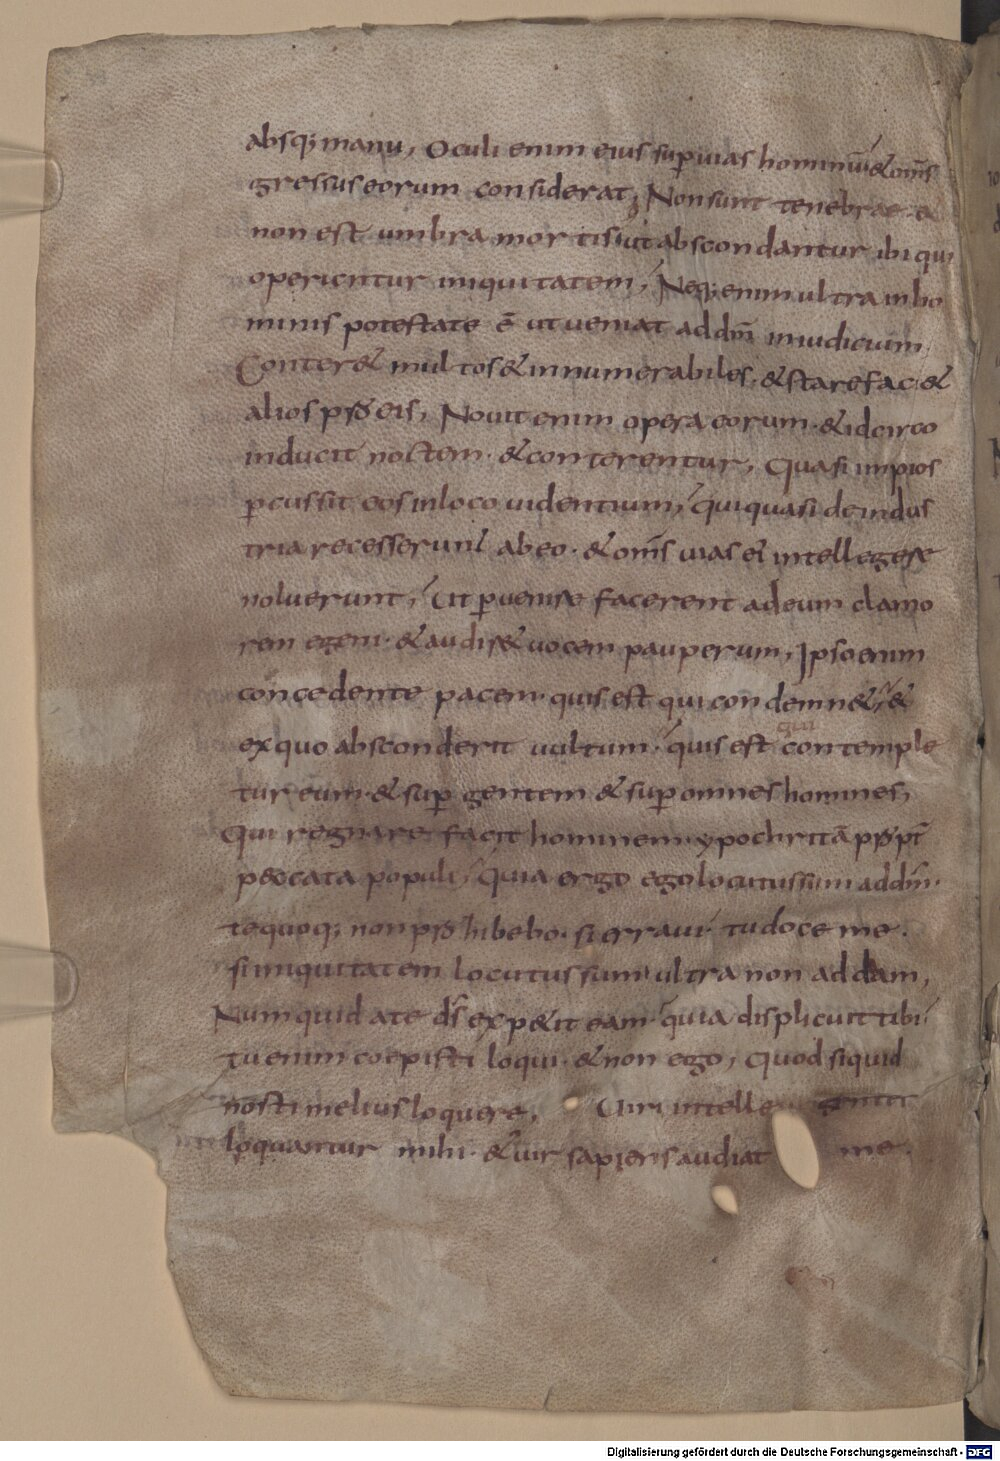 absq; manu, Oculi enim eius sup uias hominū & om̄s
gressus eorum considerat; Non sunt tenebrae &
non est umbra mortis ut abscondantur ibi qui
operiuntur iniquitatem, Neq; enim ultra in ho
minis potestate ē ut ueniat ad dm̄ in iudicium,
Conter& multos & innumerabiles, & stare faci&
alios pro eis, Nouit enim opera eorum · & idcirco
inducit noctem · & conterentur, Quasi impios
percussit eos in loco uidentium, qui quasi de indus
tria recesserunt ab eo · & om̄s uias ei intellegere
noluerunt, Ut peruenire facerent ad eum clamo
rem egeni · & audir& uocem pauperum, Ipso enim
concedente pacem · quis est qui condemn&, &
qui
ex quo absconderit uultum · quis est contemple
tur eum · & sup gentem & sup omnes homines,
Qui regnare facit hominem ypochritā propt
peccata populi, Quia ergo ego locutus sum ad dm̄ ·
te quoq; non prohibebo · si erraui tu doce me ·
si iniquitatem locutus sum ultra non addam,
Numquid a te ds̄ exp&it eam quia displicuit tibi
tu enim coepisti loqui · & non ego, Quod si quid
nosti melius loquere, Uiri intellegentes
loquantur mihi · & uir sapiens audiat me ·
Digitalisierung gefördert durch die Deutsche Forschungsgemeinschaft - DFG